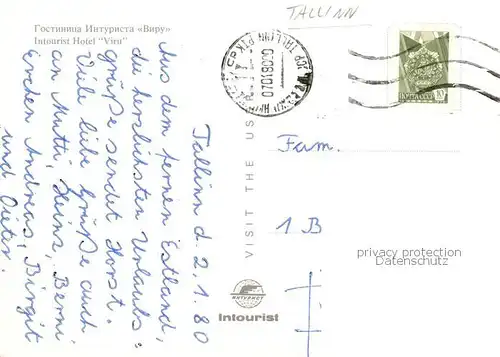 Гостиница Интуриста «Виру»
Intourist Hotel "Viru"
TALLINN
Tallinn d. 2.1.80
Aus dem fernen Estland,
die herzlichsten Urlaubs=
grüße sendet Horst.
Viele liebe Grüße auch
an Mutti, Heinz, Berni
Andreas, Birgit
und Dieter.
VISIT THE US
Fam.
1 B
privacy protection
Datenschutz
ИНТУРИСТ
Intourist
TALLINN